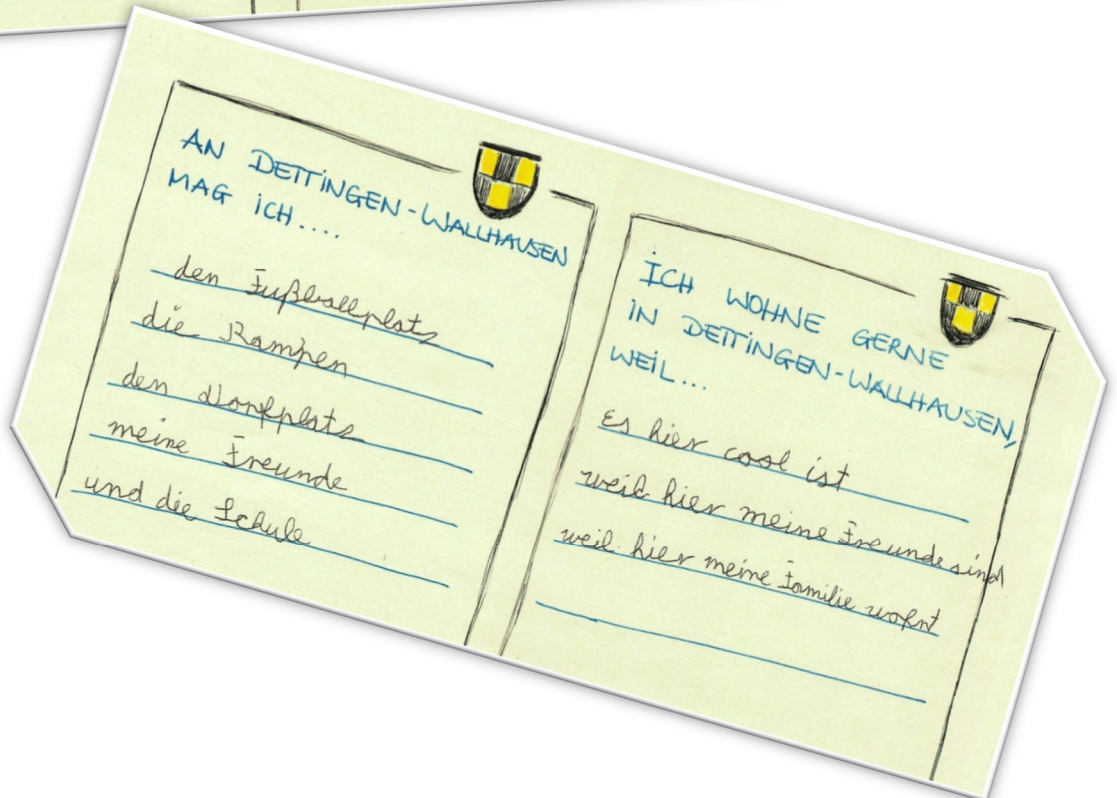 AN DETTINGEN-WALLHAUSEN
MAG ICH....
den Fußballplatz
die Rampen
den Dorfplatz
meine Freunde
und die Schule
ICH WOHNE GERNE
IN DETTINGEN-WALLHAUSEN,
WEIL...
Es hier cool ist
weil hier meine Freunde sind
weil hier meine Familie wohnt